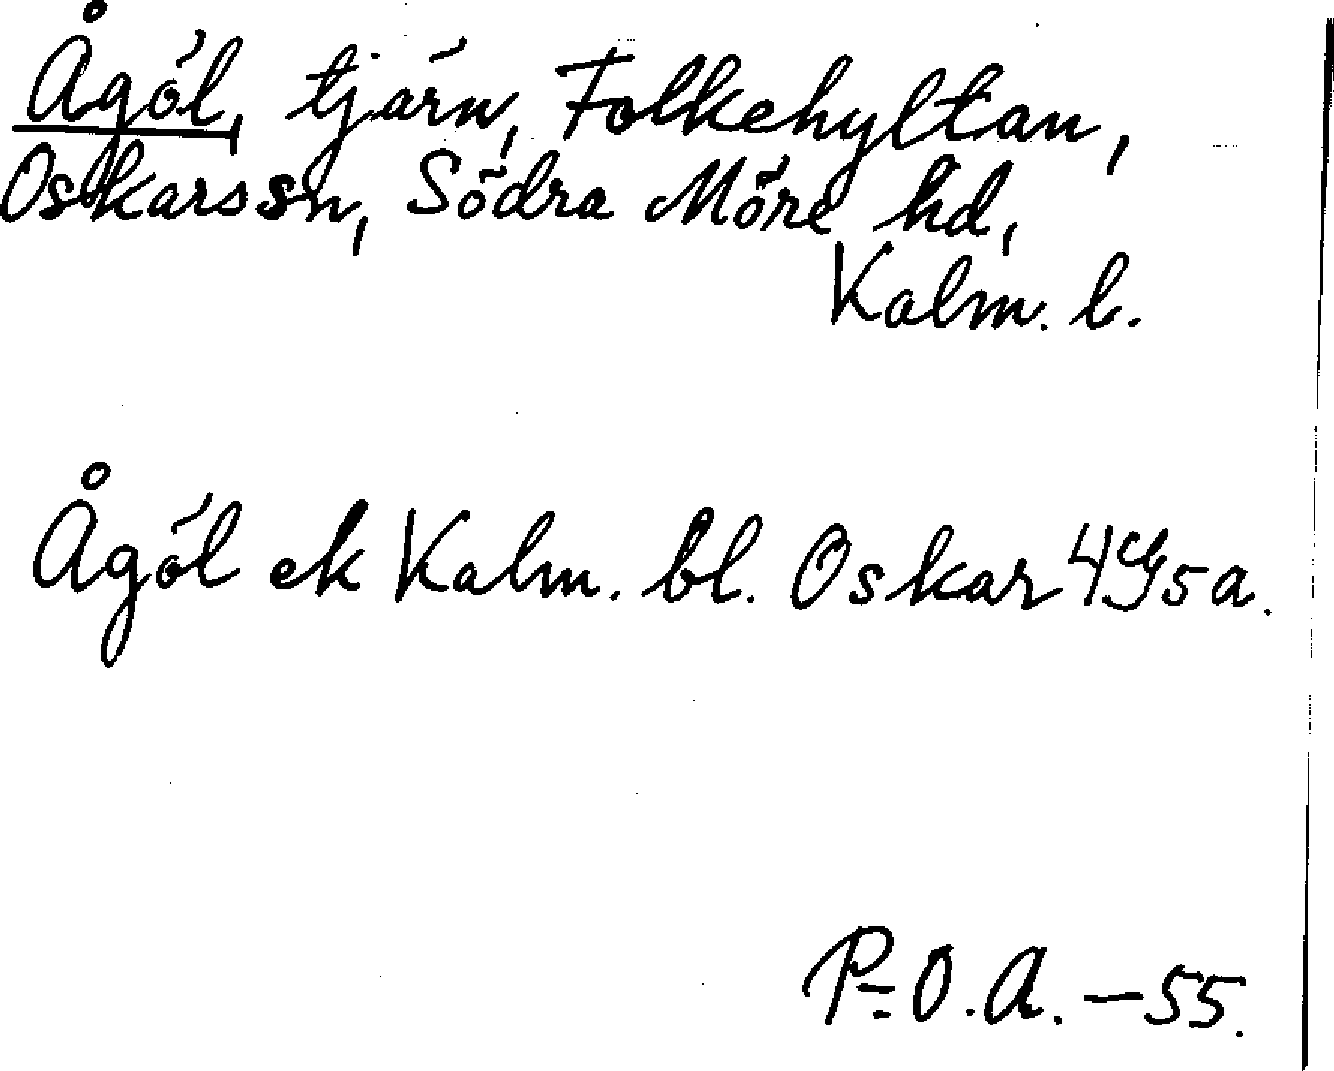 Ågöl, tjärn, Folkehyltan,
Oskars sn, Södra Möre hd,
Kalm. l.
Ågöl ek Kalm. bl. Oskar 4 Y5 a.
P-O.A. – 55.